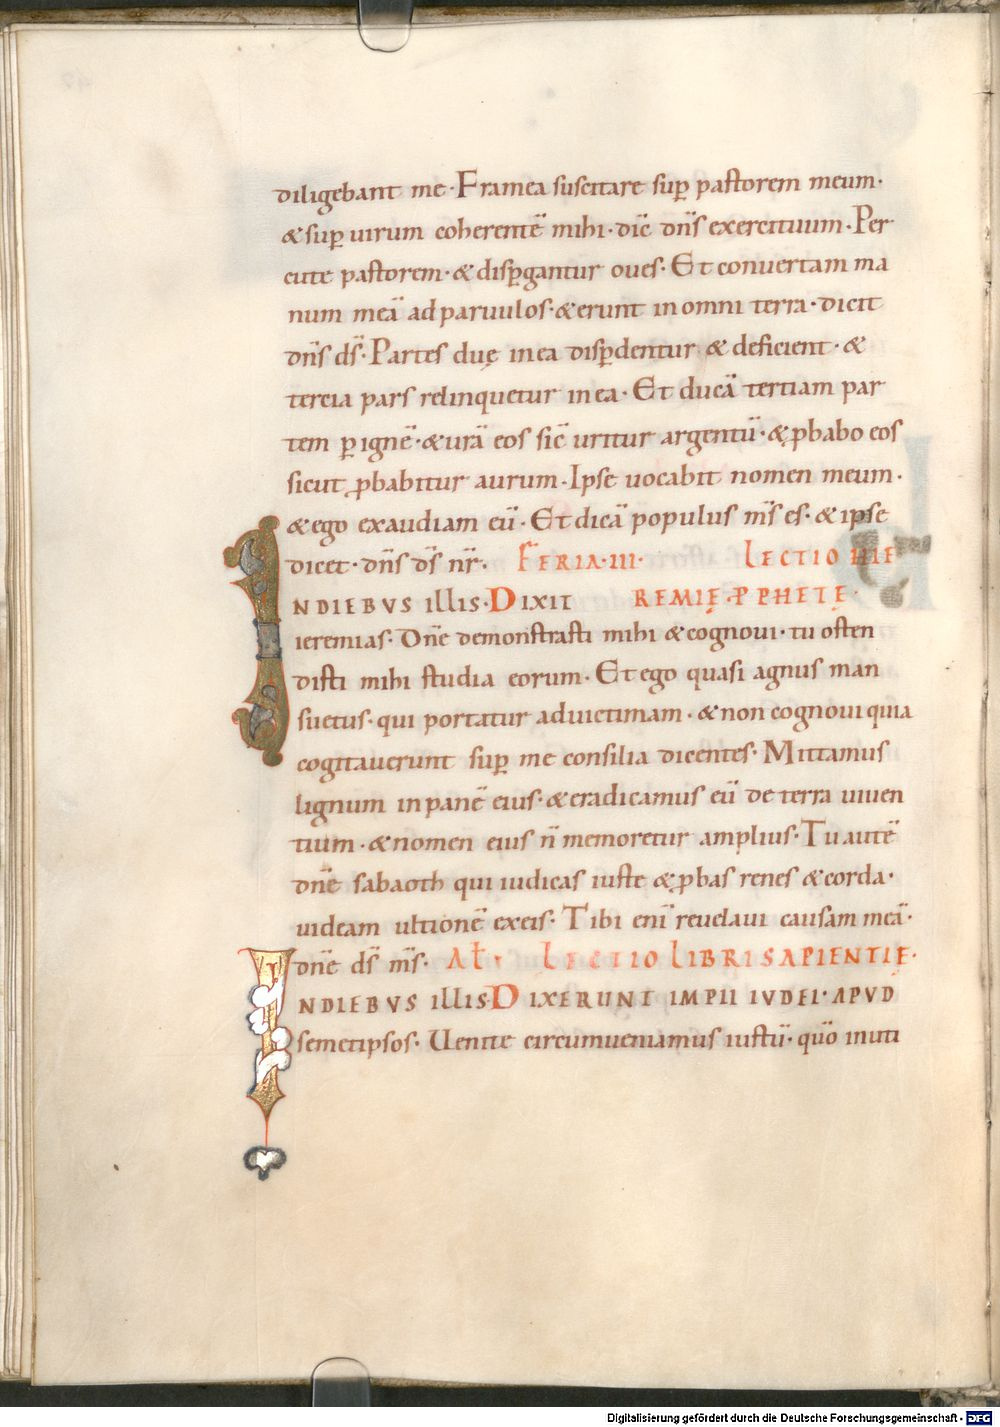 diligebant me·Framea suscitare sup̲ pastorem meum·
&sup̲ uirum coherentē mihi·dic̄ dn̄s exercituum·Per
cute pastorem·&disp̲gantur oues·Et conuertam ma
num meā ad paruulos·&erunt in omni terra·dicit
dn̄s ds̄·Partes duę in ea disp̲dentur & deficient·&
tercia pars relinquetur in ea·Et ducā tertiam par
tem p̲ ignē·&urā eos sic̄ uritur argentū·&ꝓbabo eos
sicut ꝓbabitur aurum·Ipse uocabit nomen meum·
&ego exaudiam eū·Et dicā populus ms̄ es·&ipse
dicet·dn̄s ds̄ nr̄· FERIA·III· LECTIO HIE
INDIEBVS illis·DIXIT REMIĘ·PPHETĘ·
ieremias·Dn̄e demonstrasti mihi &cognoui·tu osten
disti mihi studia eorum·Et ego quasi agnus man
suetus·qui portatur ad uictimam·&non cognoui quia
cogitauerunt sup̲ me consilia dicentes·Mittamus
lignum in panē eius·&eradicamus eū de terra uiuen
tium·&nomen eius n̄ memoretur amplius·Tu autē
dn̄e sabaoth qui iudicas iuste &ꝓbas renes &corda·
uideam ultionē ex eis·Tibi eni̅ reuelaui causam meā·
dn̄e ds̄ ms̄· Al̄· LECTIO LIBRI SAPIENTIĘ·
INDIEBVS illis·DIXERUNT IMPII IVDEI·APVD
semetipsos·Uenite circumueniamus iustū·quō inuti
Digitalisierung gefördert durch die Deutsche Forschungsgemeinschaft - DFG